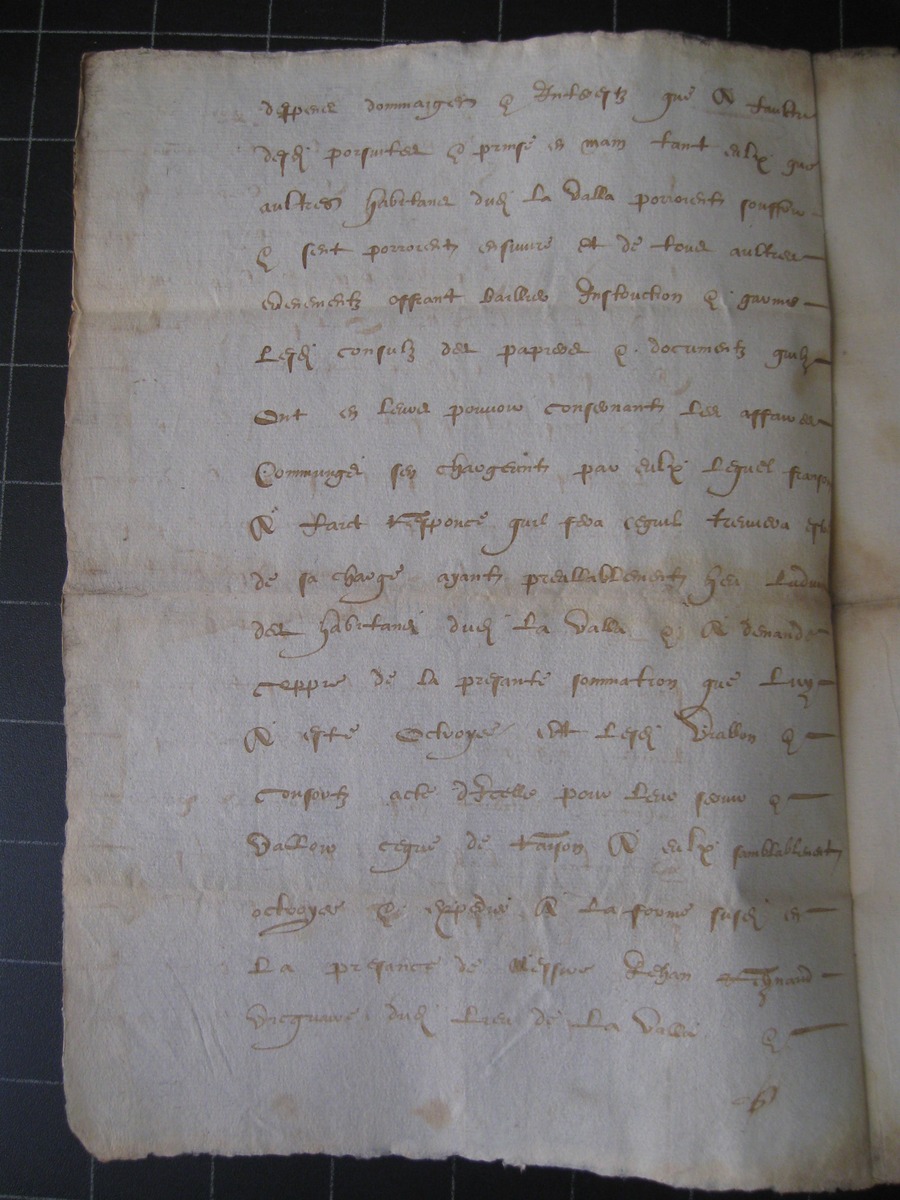 despens dommaiges & Interestz que A faulte
desd porsuites & prinse en main tant eulx que
aultres habitans dud La Valla porroient souffrir
& sent porroient ensuivre et de tous aultres
evenementz offrant bailher Instruction & garnir
Lesd consulz des papiers & documentz quilz
Ont en leurs pouvoir consernantz les affaires
Communges sen chargeantz par eulx Lequel
A faict Responce quil fera cequil treuvera estre
de sa charge ayant preallablement heu Ladvis
des habitans dud La Valla & A demande
Coppie de la presante sommation que Luy
A este Octroyee Et Lesd Viallon &
Consortz acte dIcelle pour leur servir &
Valloir ceque de Raison A eulx samblablement
octroyee & expedie A La forme susd en
La presance de Messire Jehan Reynaud
vicquaire dud Lieu de La Valla &